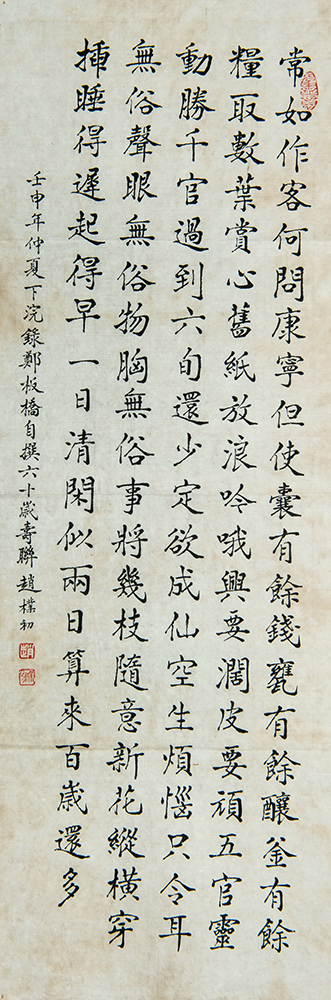 常如作客何問康寧但使囊有餘錢甕有餘釀釜有餘
糧取數葉賞心舊紙放浪吟哦興要濶皮要頑五官靈
動勝千官過到六旬還少定欲成仙空生煩惱只令耳
無俗聲眼無俗物胸無俗事將幾枝隨意新花縱橫穿
插睡得遲起得早一日清閑似兩日算來百歲還多
壬申年仲夏下浣錄鄭板橋自撰六十歲壽聯趙樸初